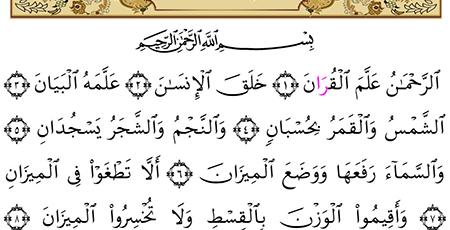 بِسْمِ اللَّهِ الرَّحْمَٰنِ الرَّحِيمِ
الرَّحْمَـٰنُ عَلَّمَ الْقُرَانَ ﴿١﴾ خَلَقَ الْإِنسَـٰنَ ﴿٢﴾ عَلَّمَهُ الْبَيَانَ ﴿٣﴾
الشَّمْسُ وَالْقَمَرُ بِحُسْبَانٍ ﴿٤﴾ وَالنَّجْمُ وَالشَّجَرُ يَسْجُدَانِ ﴿٥﴾
وَالسَّمَآءَ رَفَعَهَا وَوَضَعَ الْمِيزَانَ ﴿٦﴾ أَلَّا تَطْغَوْا۟ فِى الْمِيزَانِ
﴿٧﴾ وَأَقِيمُوا۟ الْوَزْنَ بِالْقِسْطِ وَلَا تُخْسِرُوا۟ الْمِيزَانَ ﴿٨﴾